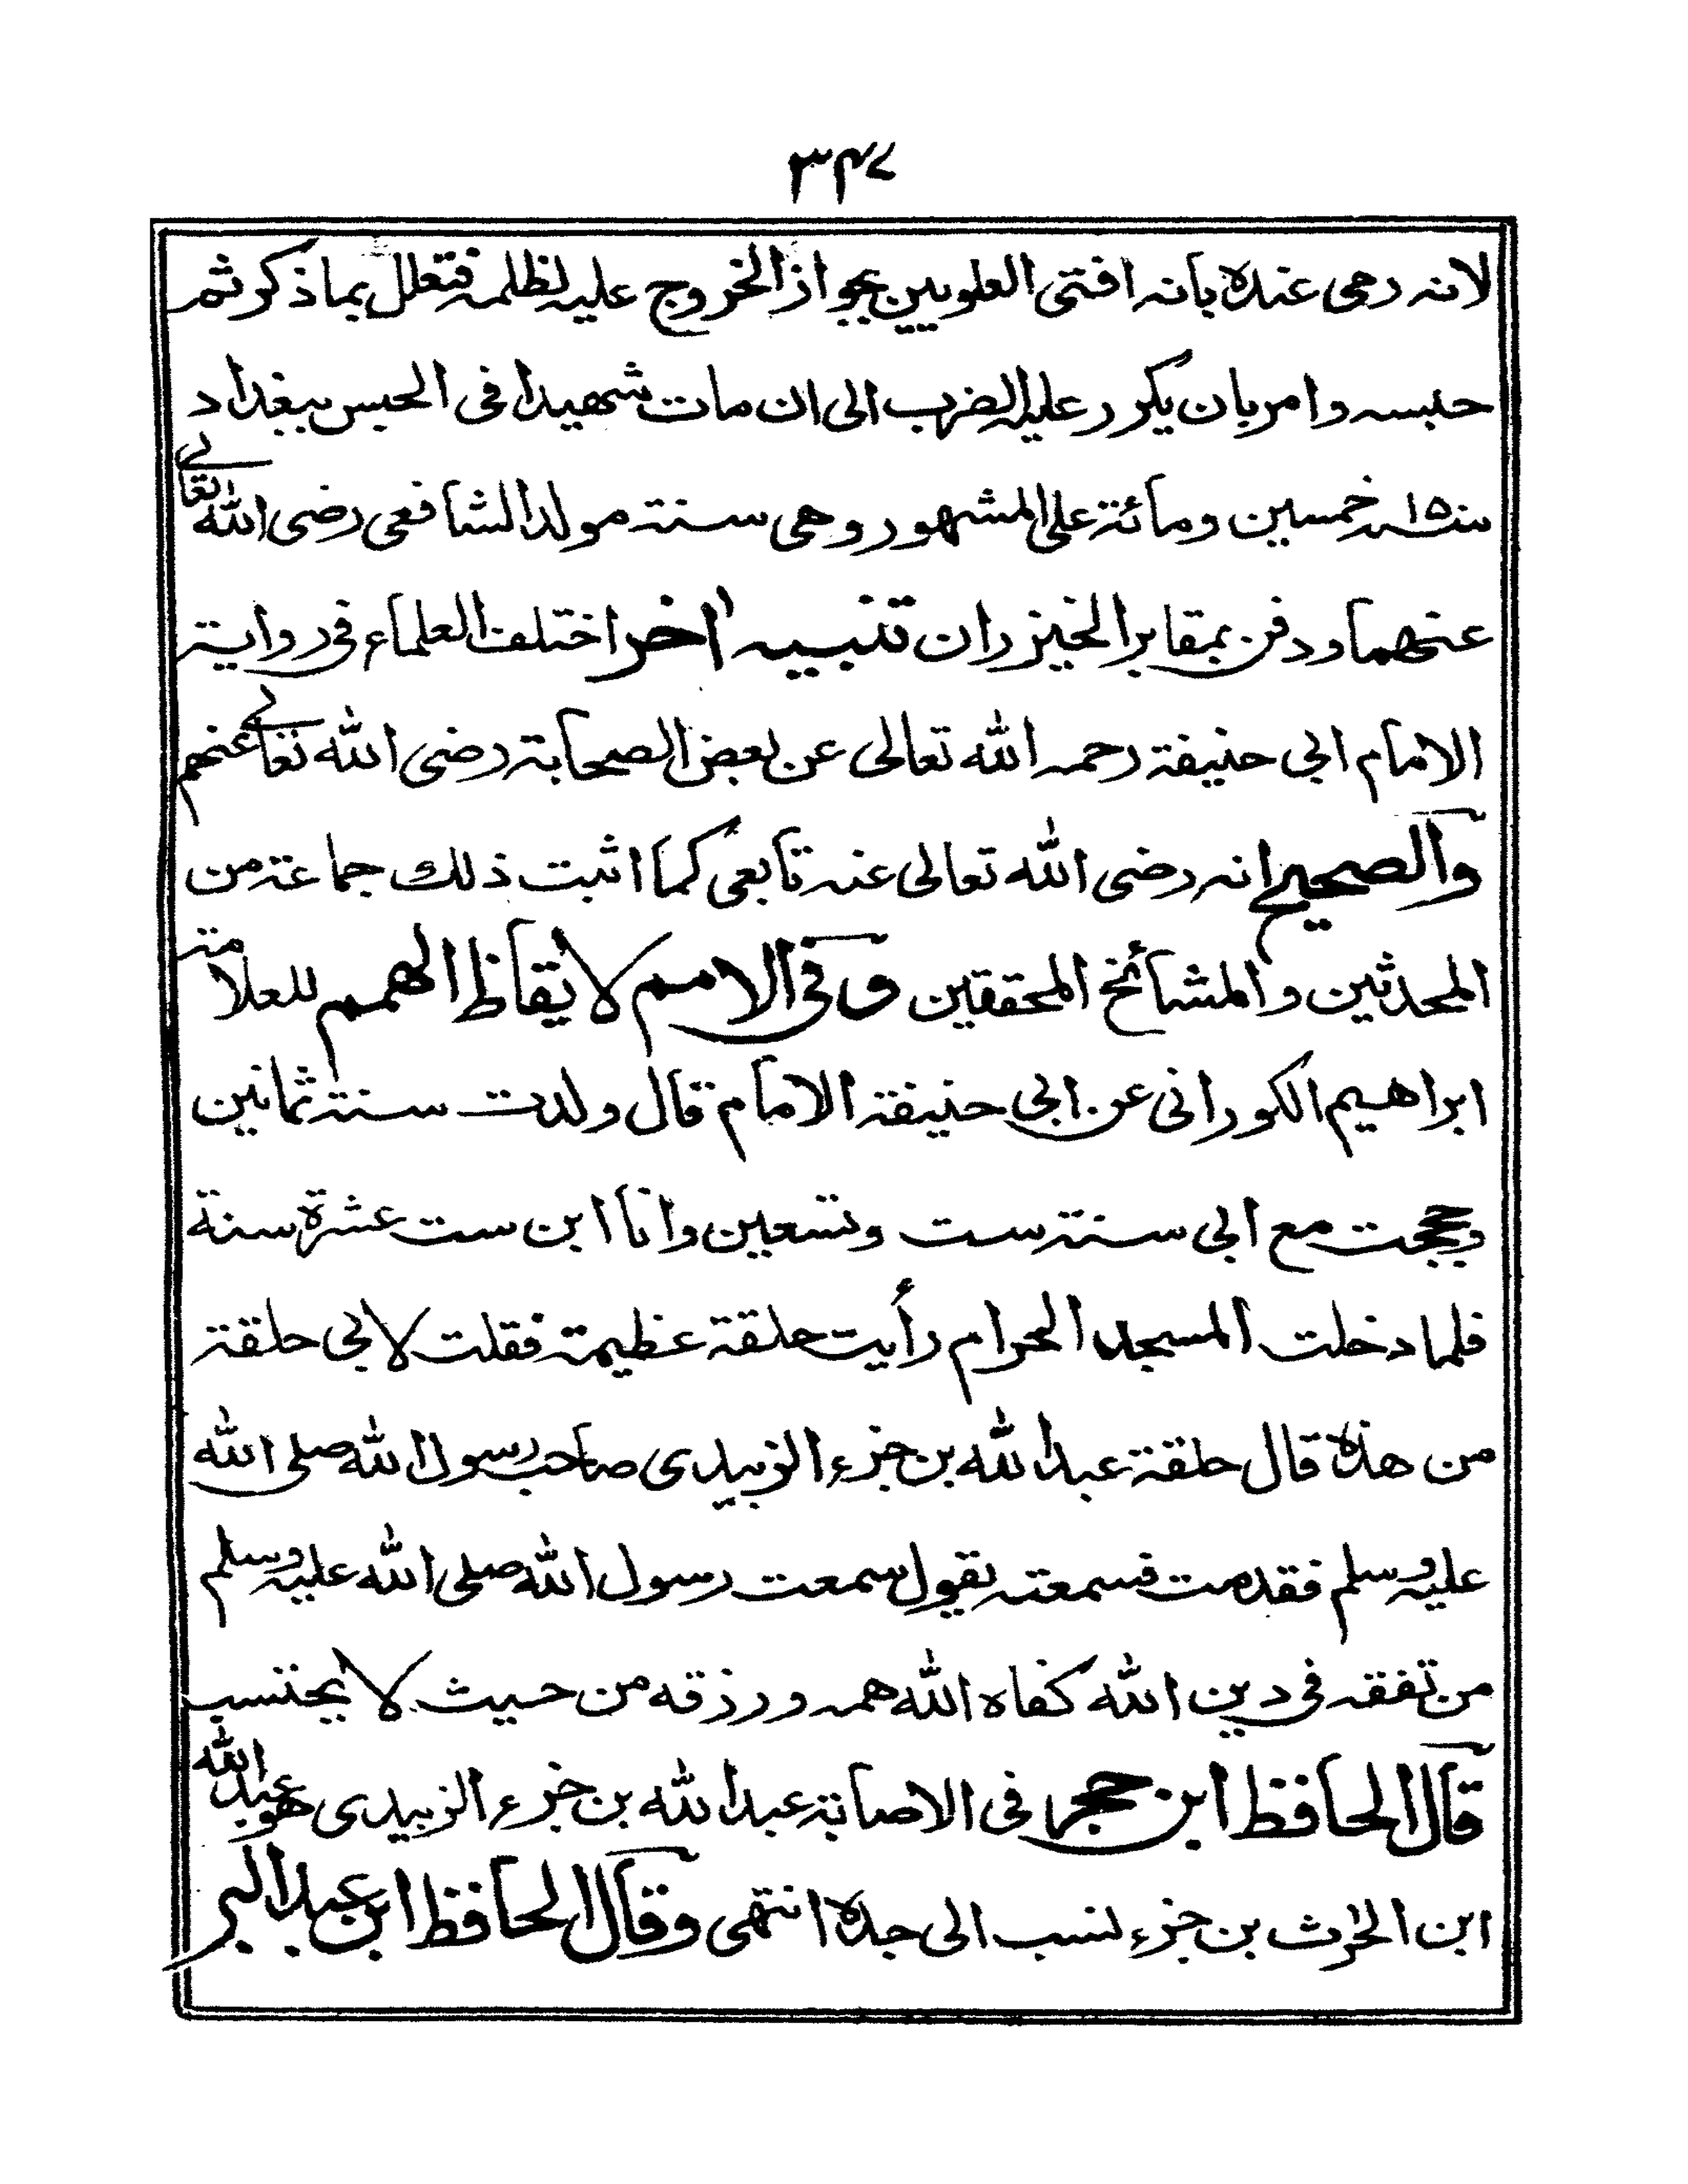 ٣٤٧
لانه رمى عنده بانه افتى العلويين بجواز الخروج عليه لظلمه فتعلل بما ذكر ثم
حبسه وامر بان يكرر عليه الضرب الى ان مات شهيدا فى الحبس ببغداد
سنة ١٥٠ خمسين ومائة على المشهور وهى سنة مولد الشافعى رضى الله تعالے
عنهما ودفن بمقابر الخيزران تنبيه اٰخر اختلف العلماء فى رواية
الامام ابى حنيفة رحمه الله تعالى عن بعض الصحابة رضى الله تعالے عنهم
والصحيح انه رضى الله تعالى عنه تابعى كما اثبت ذلك جماعة من
المحدثين والمشائخ المحققين وفى الامم لايقاظ الهمم للعلامة
ابراهيم الكورانى عن ابى حنيفة الامام قال ولدت سنة ثمانين
وحججت مع ابى سنة ست وتسعين وانا ابن ست عشرة سنة
فلما دخلت المسجد الحرام رأيت حلقة عظيمة فقلت لابى حلقة
من هذه قال حلقة عبد الله بن جزء الزبيدى صاحب رسول الله صلى الله
عليه وسلم فقدمت فسمعته يقول سمعت رسول الله صلى الله عليه وسلم
من تفقه فى دين الله كفاه الله همه ورزقه من حيث لا يحتسب
قال الحافظ ابن حجر فى الاصابة عبد الله بن جزء الزبيدى هو عبد الله
ابن الحٰرث بن جزء لنسب الى جده انتهى وقال الحافظ ابن عبد البر